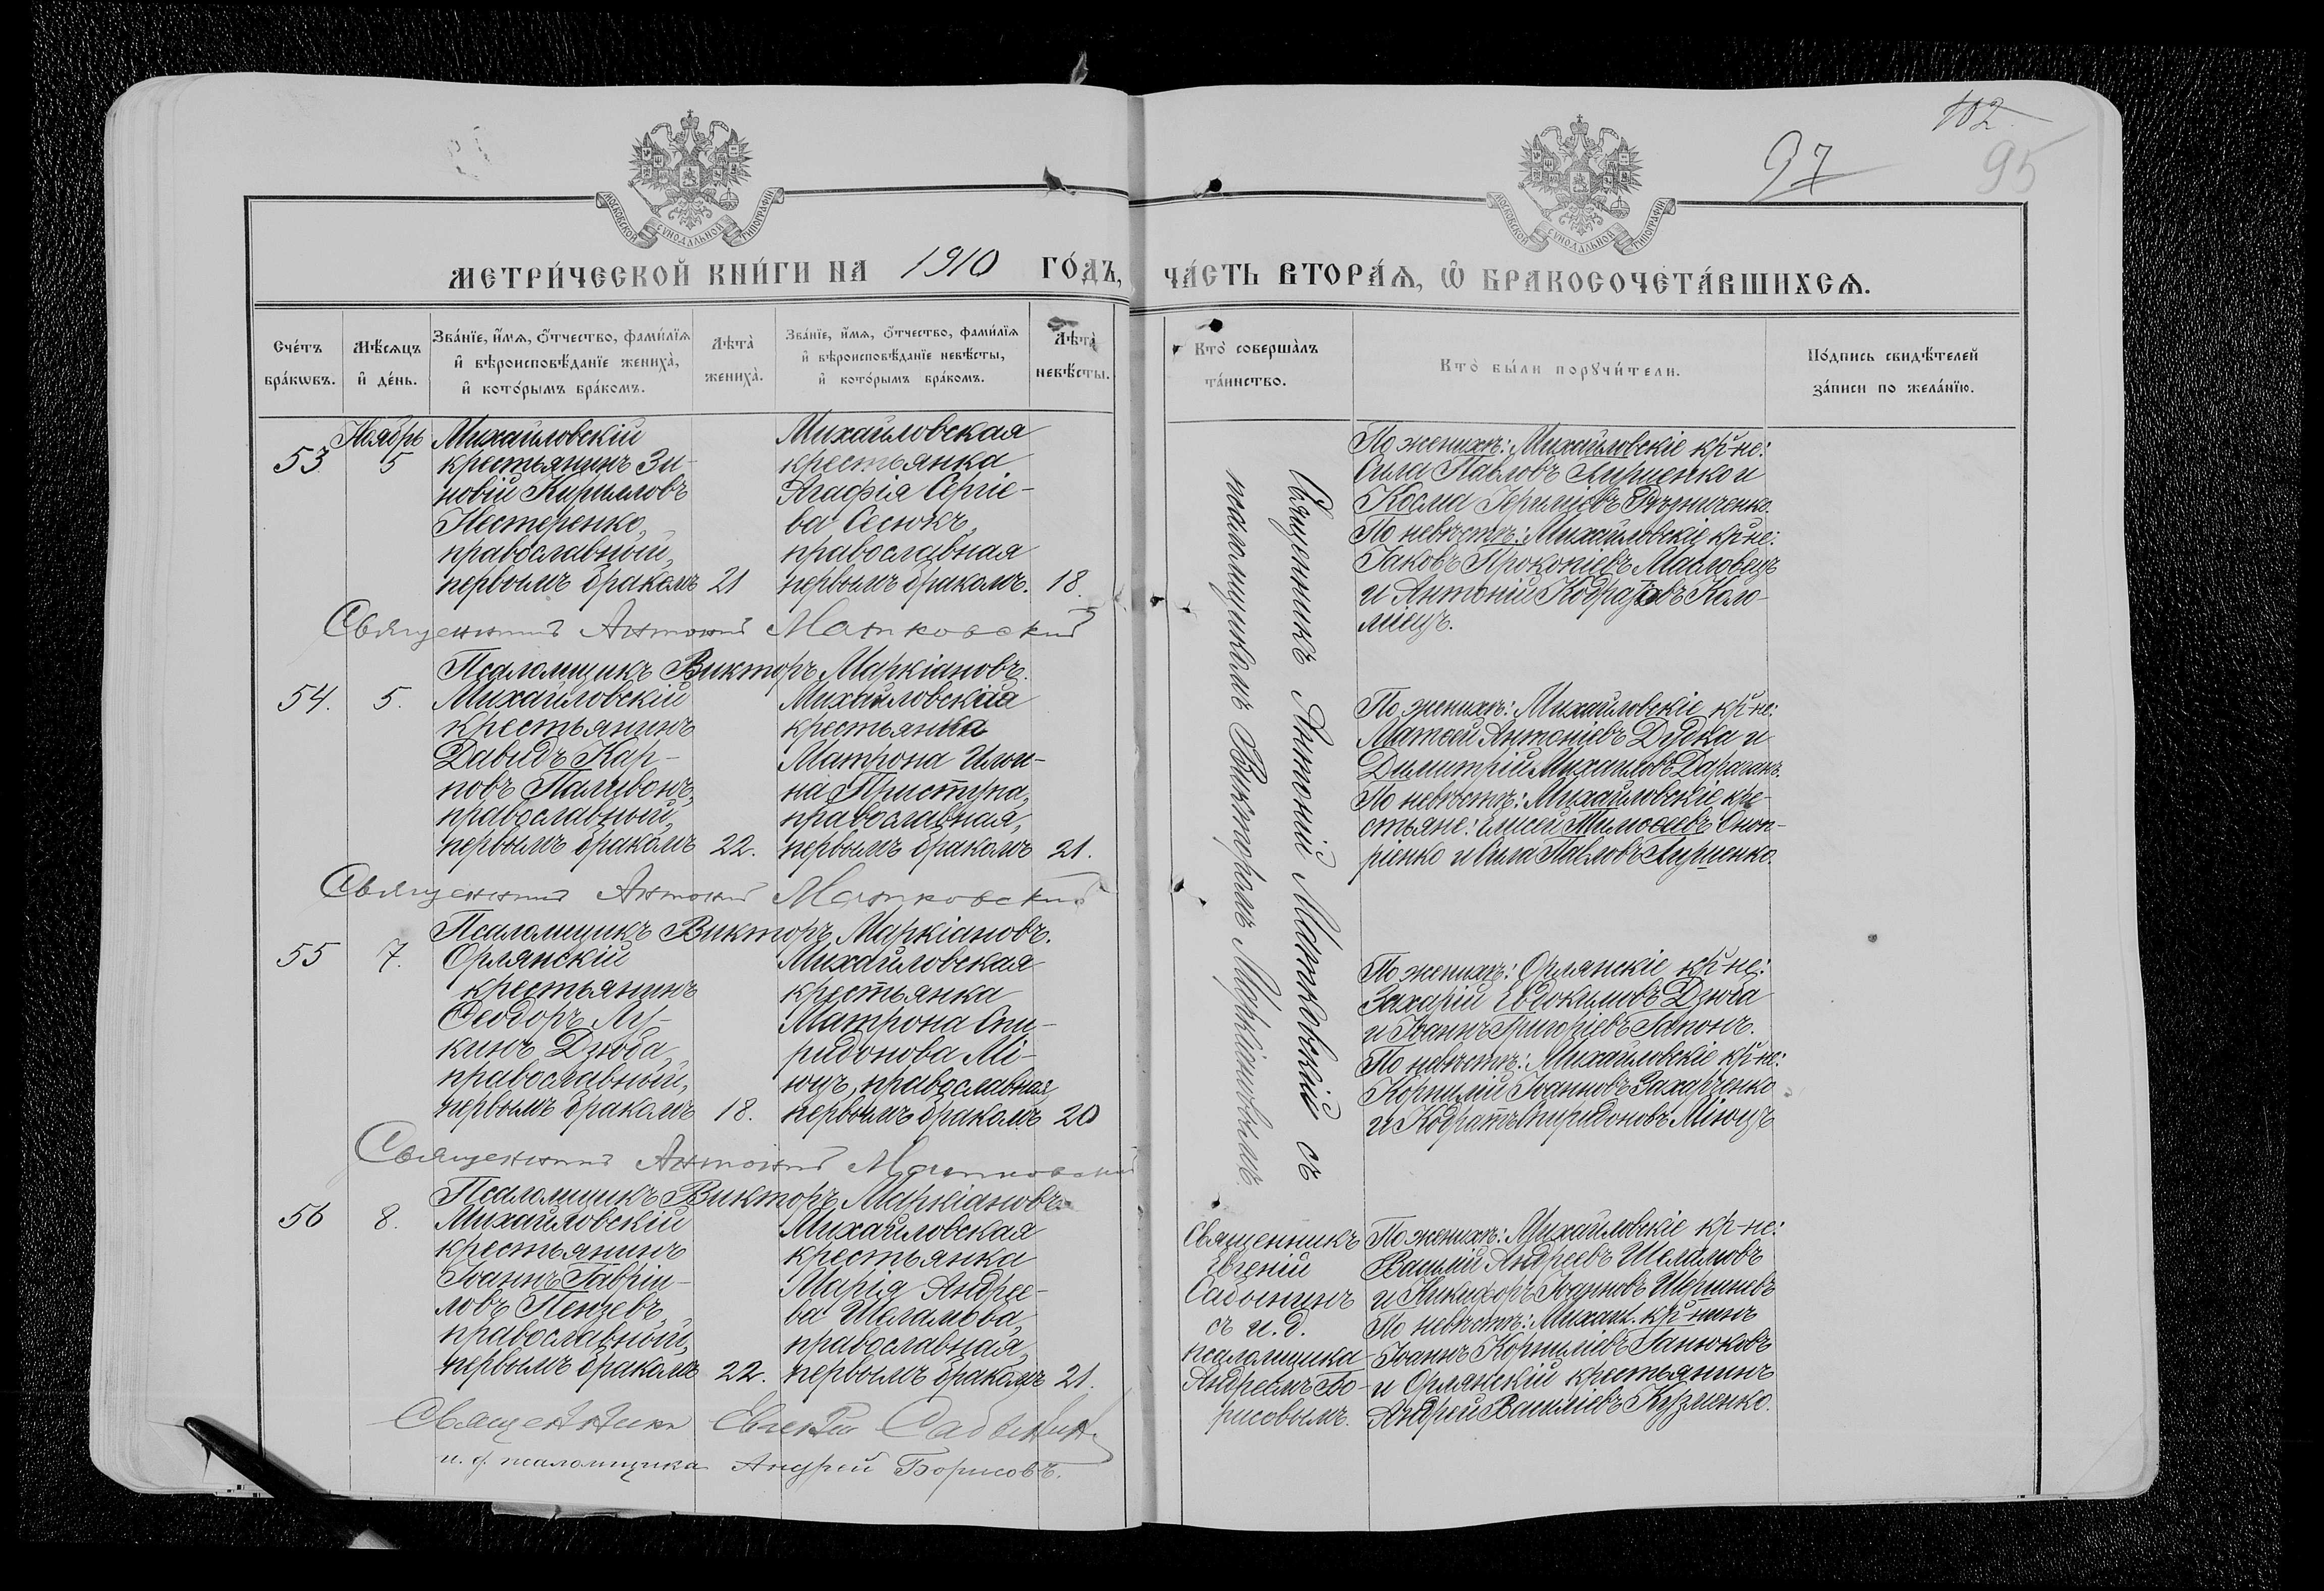 102
97
95
МОСКОВСКОЙ СУНОДАЛЬНОЙ ТИПОГРАФІИ
МОСКОВСКОЙ СУНОДАЛЬНОЙ ТИПОГРАФІИ
МЕТРИ́ЧЕСКОЙ КНИ́ГИ НА 1910 ГО́ДЪ, ЧА́СТЬ ВТОРА́Ѧ, Ѽ БРАКОСОЧЕТА́ВШИХСѦ.
Сче́тъ бра́кѡвъ.
Мѣ́сѧцъ и҆ де́нь.
Зва́нїе, и҆́мѧ, ѻ҆́тчество, фами́лїѧ
и҆ вѣроисповѣ́данїе жениха̀,
и҆ кото́рымъ бра́комъ.
Лѣ́та̀ жениха̀.
Зва́нїе, и҆́мѧ, ѻ҆́тчество, фами́лїѧ
и҆ вѣроисповѣ́данїе невѣ́сты,
и҆ кото́рымъ бра́комъ.
Лѣ́та̀ невѣ́сты.
Кто̀ соверша̀лъ
та́инство.
Кто̀ бы́ли порꙋчи́тели.
По́дпись свидѣ́телей
за́писи по жела́нїю.
53
Ноябрь
5
Михайловскій
крестьянинъ Зи-
новій Кирилловъ
Нестеренко,
православный,
первымъ бракомъ 21
Михайловская
крестьянка
Агафія Сергіе-
ва Сесюкъ,
православная
первымъ бракомъ. 18.
По женихѣ: Михайловскіе кр-не:
Сила Павловъ Лирценко и
Косма
По невѣстѣ: Михайловскіе кр-не:
Іаковъ Прокопіевъ Маловецъ
и Антоній Кодратовъ Коло-
міецъ.
Священникъ Антоній Матковскій
Псаломщикъ Викторъ Маркіановъ.
54.
5.
Михайловскій
крестьянинъ
Давидъ Кар-
повъ Паливонъ,
православный,
первымъ бракомъ 22.
Михайловская
крестьянка
Матрона Ильи-
на Приступа,
православная,
первымъ бракомъ 21.
По женихѣ: Михайловскіе кр-не:
Матѳей Антоніевъ Дудка и
Димитрій Михаиловъ Дараганъ.
По невѣстѣ: Михайловскіе кре-
стьяне: Елисей Оноп-
ріенко и Сила Павловъ Лирценко
Священникъ Антоній Матковскій
Псаломщикъ Викторъ Маркіановъ.
55
7.
Орлянскій
крестьянинъ
Ѳеодоръ Лу-
кинъ Дзюба,
православный,
первымъ бракомъ 18.
Михайловская
крестьянка
Матрона Спи-
ридонова Мі-
юцъ, православная
первымъ бракомъ 20
По женихѣ: Орлянскіе кр-не:
Захарій Евдокимовъ Дзюба
и Іоаннъ Григоріевъ Гапонъ.
По невѣстѣ: Михайловскіе кр-не:
Корнилій Іоанновъ Захарченко
и Кодратъ Спиридоновъ Міюцъ
Священникъ Антоній Матковскій
Псаломщикъ Викторъ Маркіановъ
Священникъ Антоній Матковскій съ
псаломщикомъ Викторомъ Маркіановымъ
56
8.
Михайловскій
крестьянинъ
Іоаннъ Гавріи-
ловъ Пензевъ,
православный,
первымъ бракомъ 22.
Михайловская
крестьянка
Марія Андрее-
ва Шеламова,
православная,
первымъ бракомъ 21.
Священникъ
Евгеній
Савоинъ
съ и. д.
псаломщика
Андреемъ Бо-
рисовымъ.
По женихѣ: Михайловскіе кр-не:
Василій Андреевъ Шеламовъ
и Никифоръ Іоанновъ Ширшневъ
По невѣстѣ: Михаил. кр-нинъ
Іоаннъ Корниліевъ Ганюковъ
и Орлянскій крестьянинъ
Андрей Василіевъ Кузменко.
Священникъ Евгеній
и. д. псаломщика Андрей Борисовъ.